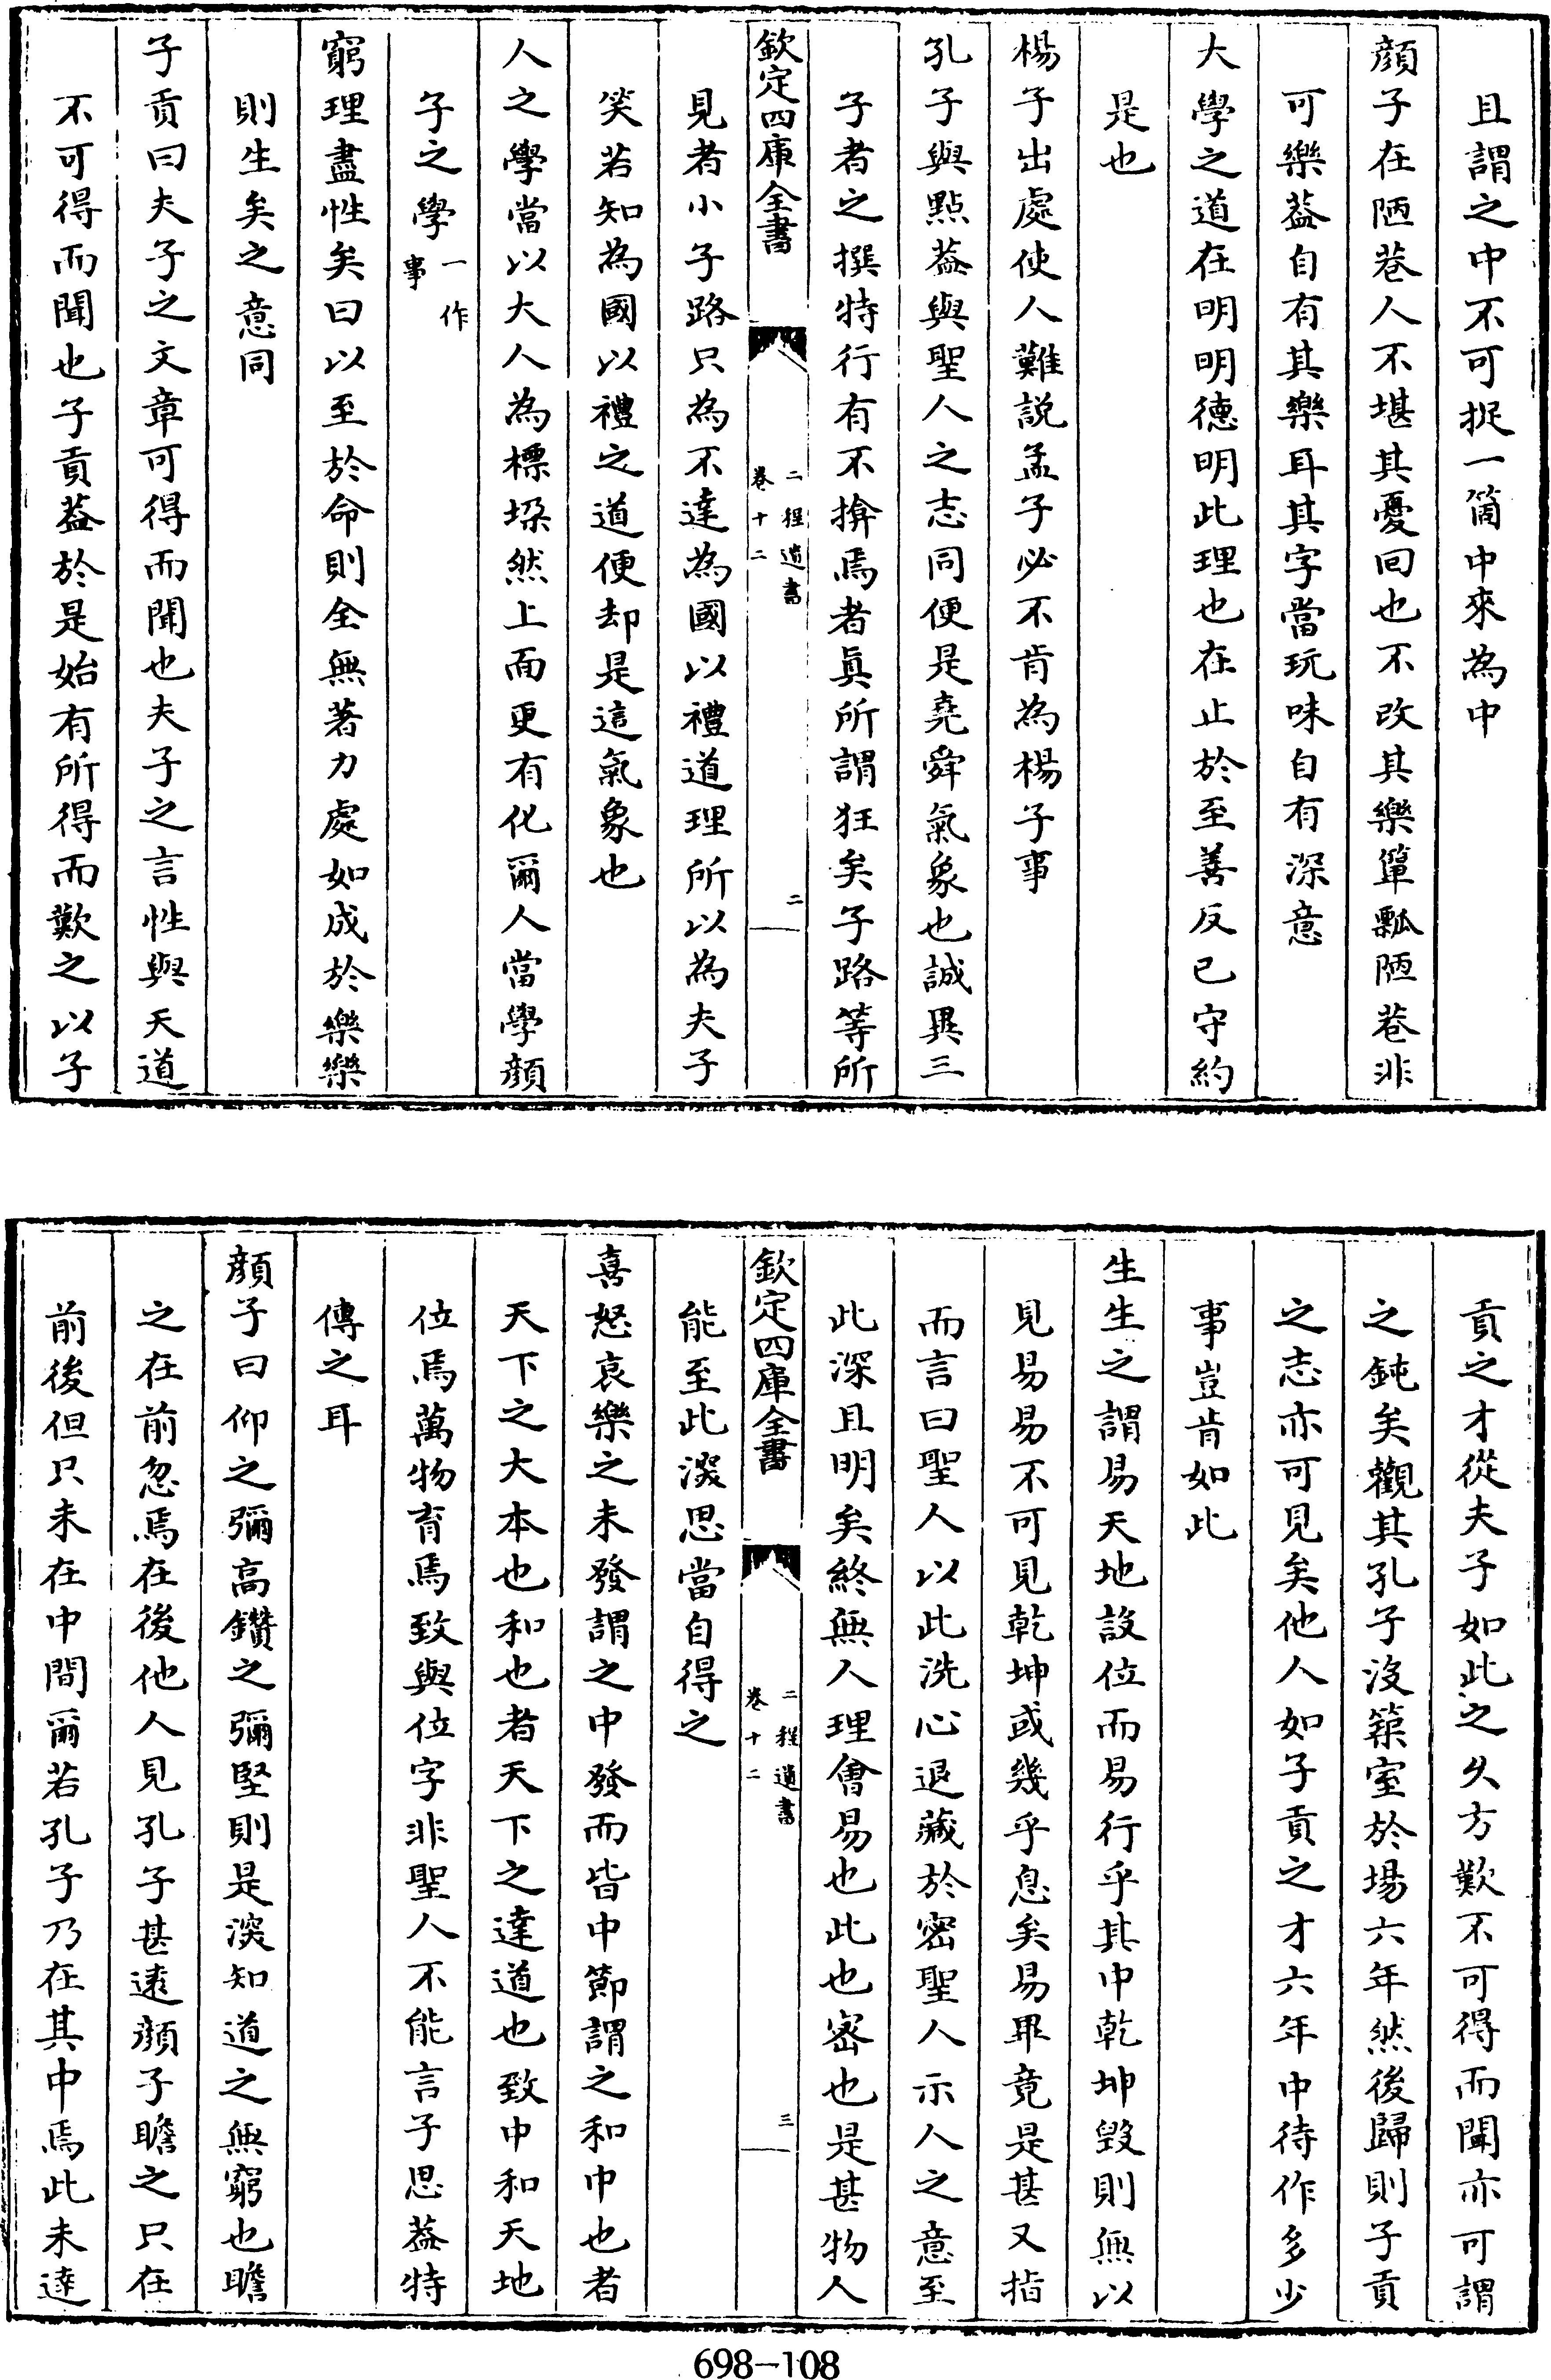 且謂之中不可捉一箇中來為中
顔子在陋巷人不堪其憂回也不改其樂簞瓢陋巷非
可樂葢自有其樂耳其字當玩味自有深意
大學之道在明明德明此理也在止於至善反已守約
是也
楊子出處使人難説孟子必不肯為楊子事
孔子與點葢與聖人之志同便是堯舜氣象也誠異三
子者之撰特行有不揜焉者真所謂狂矣子路等所
欽定四庫全書
二程遺書
卷十二
二
見者小子路只為不達為國以禮道理所以為夫子
笑若知為國以禮之道便却是這氣象也
人之學當以大人為標垜然上面更有化爾人當學顔
子之學一作事
窮理盡性矣曰以至於命則全無著力處如成於樂樂
則生矣之意同
子貢曰夫子之文章可得而聞也夫子之言性與天道
不可得而聞也子貢葢於是始有所得而歎之以子
貢之才從夫子如此之久方歎不可得而聞亦可謂
之鈍矣觀其孔子沒築室於場六年然後歸則子貢
之志亦可見矣他人如子貢之才六年中待作多少
事豈肯如此
生生之謂易天地設位而易行乎其中乾坤毀則無以
見易易不可見乾坤或幾乎息矣易畢竟是甚又指
而言曰聖人以此洗心退藏於密聖人示人之意至
此深且明矣終無人理會易也此也密也是甚物人
欽定四庫全書
二程遺書
卷十二
三
能至此深思當自得之
喜怒哀樂之未發謂之中發而皆中節謂之和中也者
天下之大本也和也者天下之達道也致中和天地
位焉萬物育焉致與位字非聖人不能言子思葢特
傳之耳
顔子曰仰之彌高鑽之彌堅則是深知道之無窮也瞻
之在前忽焉在後他人見孔子甚遠顔子瞻之只在
前後但只未在中間爾若孔子乃在其中焉此未達
698-108